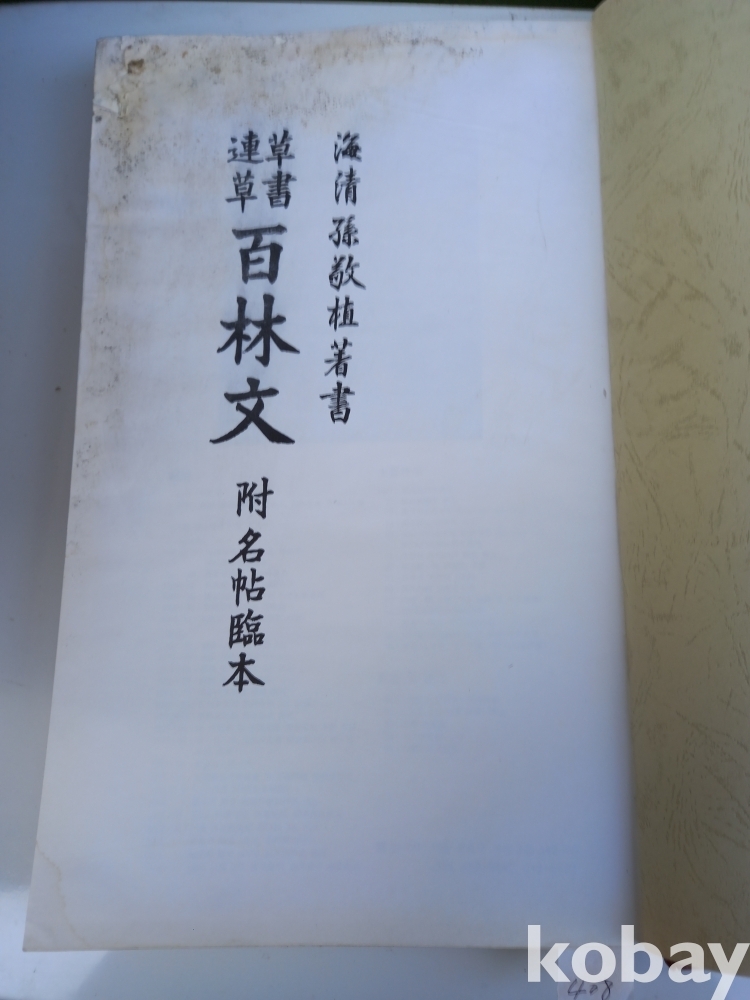 海清孫敬植著書
草書
連草
百林文
附名帖臨本
kobay
408